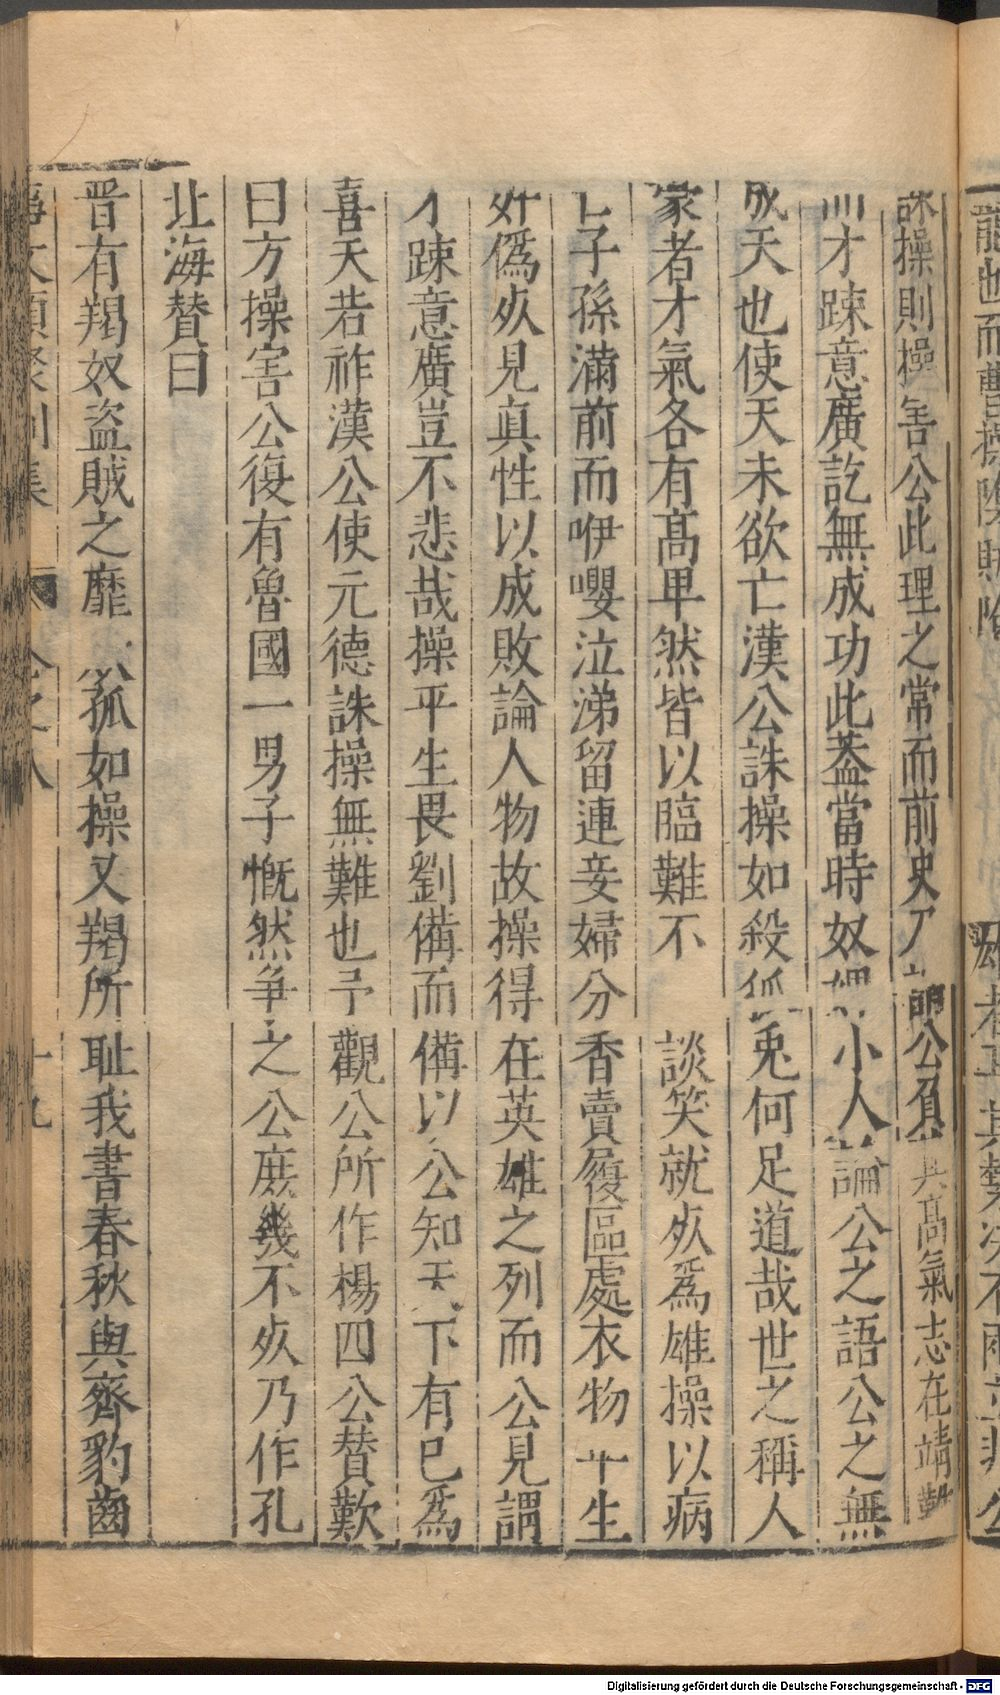 誅操則操害公此理之常而前史乃謂公負其高氣志在靖難
而才踈意廣訖無成功此葢當時奴婢小人論公之語公之無
成天也使天未欲亡漢公誅操如殺狐兎何足道哉世之稱人
豪者才氣各有髙甲然皆以臨難不談笑就死爲雄操以病
亡子孫滿前而咿嚶泣涕留連妾婦分香賣履區處衣物平生
奸偽死見真性以成敗論人物故操得在英雄之列而公見謂
才踈意廣豈不悲哉操平生畏劉備而備以公知天下有巳爲
喜天若祚漢公使元德誅操無難也予觀公所作楊四公賛歎
曰方操害公復有魯國一男子慨然争之公庶幾不死乃作孔
北海賛曰
晋有羯奴盗賊之靡 狐如操又羯所耻我書春秋與齊豹齒
事文類聚別集 之八 十九
Digitalisierung gefördert durch die Deutsche Forschungsgemeinschaft - DFG